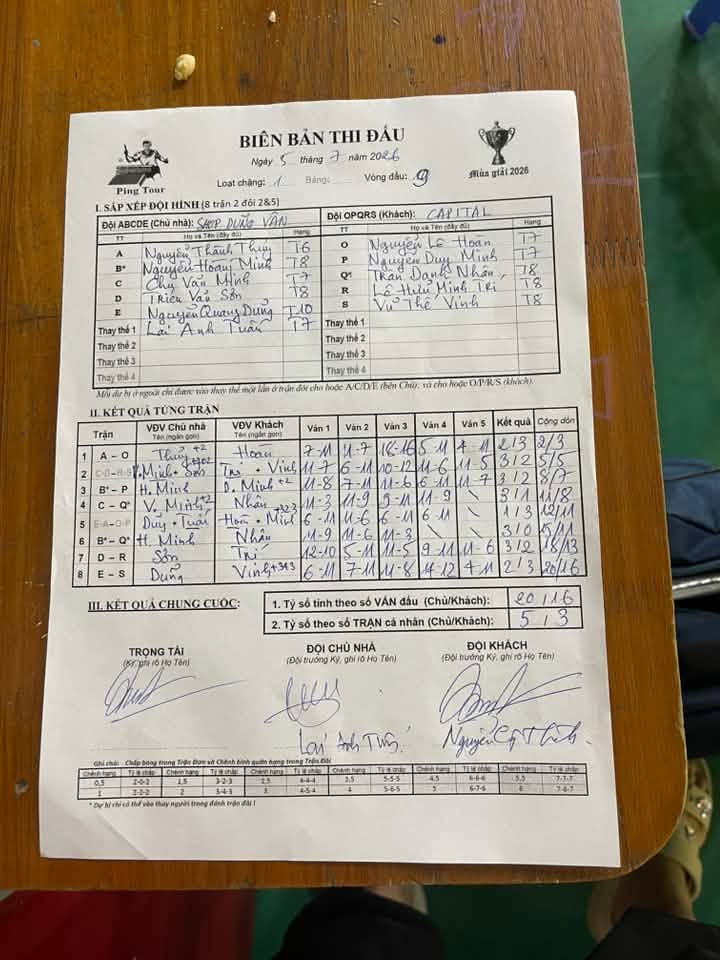 BIÊN BẢN THI ĐẤU
Ngày 5 tháng 7 năm 2026
Ping Tour
Loạt chặng: 1 Bảng: Vòng đấu: 9
Mùa giải 2026
I. SẮP XẾP ĐỘI HÌNH (8 trận 2 đôi 2&5)
Đội ABCDE (Chủ nhà): SHOP DŨNG VÂN Đội OPQRS (Khách): CAPITAL
TT Họ và Tên (đầy đủ) Hạng TT Họ và Tên (đầy đủ) Hạng
A Nguyễn Thành Thuy T6 O Nguyễn Lê Hoàn T7
B* Nguyễn Hoàng Minh T8 P Nguyễn Duy Minh T7
C Chu Văn Minh T7 Q* Trần Danh Nhân T8
D Triệu Văn Sơn T8 R Lê Hữu Minh Trí T8
E Nguyễn Quang Dũng T10 S Vũ Thế Vinh T8
Thay thế 1 Lại Anh Tuấn T7 Thay thế 1
Thay thế 2 Thay thế 2
Thay thế 3 Thay thế 3
Thay thế 4 Thay thế 4
Mỗi dự bị ở ngoài chỉ được vào thay thế một lần ở trận đơn cho hoặc A/C/D/E (bên Chủ); và cho hoặc O/P/R/S (khách).
II. KẾT QUẢ TỪNG TRẬN
Trận VĐV Chủ nhà VĐV Khách Ván 1 Ván 2 Ván 3 Ván 4 Ván 5 Kết quả Cộng dồn
Tên (ngắn gọn) Tên (ngắn gọn)
1 A – O +2 Hoàn 7-11 11-7 18-16 5-11 4-11 2/3 2/3
2 V. Minh + Sơn Trí + Vinh 11-7 6-11 10-12 11-6 11-5 3/2 5/5
3 B* – P H. Minh D. Minh +2 11-8 7-11 11-6 11-7 3/2 8/7
4 C – Q* V. Minh +2 Nhân 11-3 11-9 9-11 11-9 \ 3/1 11/8
5 E-A-O-P Dũng + Tuấn Hoàn + Minh 6-11 11-6 6-11 6-11 \ 1/3 12/11
6 B* – Q* H. Minh Nhân 11-9 11-6 11-5 \ \ 3/0 15/11
7 D – R Sơn Trí 12-10 5-11 11-5 9-11 11-6 3/2 18/13
8 E – S Dũng Vinh 6-11 7-11 11-8 14-12 4-11 2/3 20/16
III. KẾT QUẢ CHUNG CUỘC:
1. Tỷ số tính theo số VÁN đấu (Chủ/Khách): 20/16
2. Tỷ số theo số TRẬN cá nhân (Chủ/Khách): 5/3
TRỌNG TÀI ĐỘI CHỦ NHÀ ĐỘI KHÁCH
(Ký, ghi rõ Họ Tên) (Đội trưởng Ký, ghi rõ Họ Tên) (Đội trưởng Ký, ghi rõ Họ Tên)
Lại Anh Nguyễn
Ghi chú: Chấp bóng trong Trận Đơn và Chênh bình quân hạng trong Trận Đôi
Chênh hạng Tỷ lệ chấp Chênh hạng Tỷ lệ chấp Chênh hạng Tỷ lệ chấp Chênh hạng Tỷ lệ chấp Chênh hạng Tỷ lệ chấp Chênh hạng Tỷ lệ chấp
0,5 2-0-2 1,5 3-2-3 2,5 4-4-4 3,5 5-5-5 4,5 6-6-6 5,5 7-7-7
1 2-2-2 2 3-4-3 3 4-5-4 4 5-6-5 5 6-7-6 6 7-8-7
* Dự bị chỉ có thể vào thay người trong đánh trận đôi !